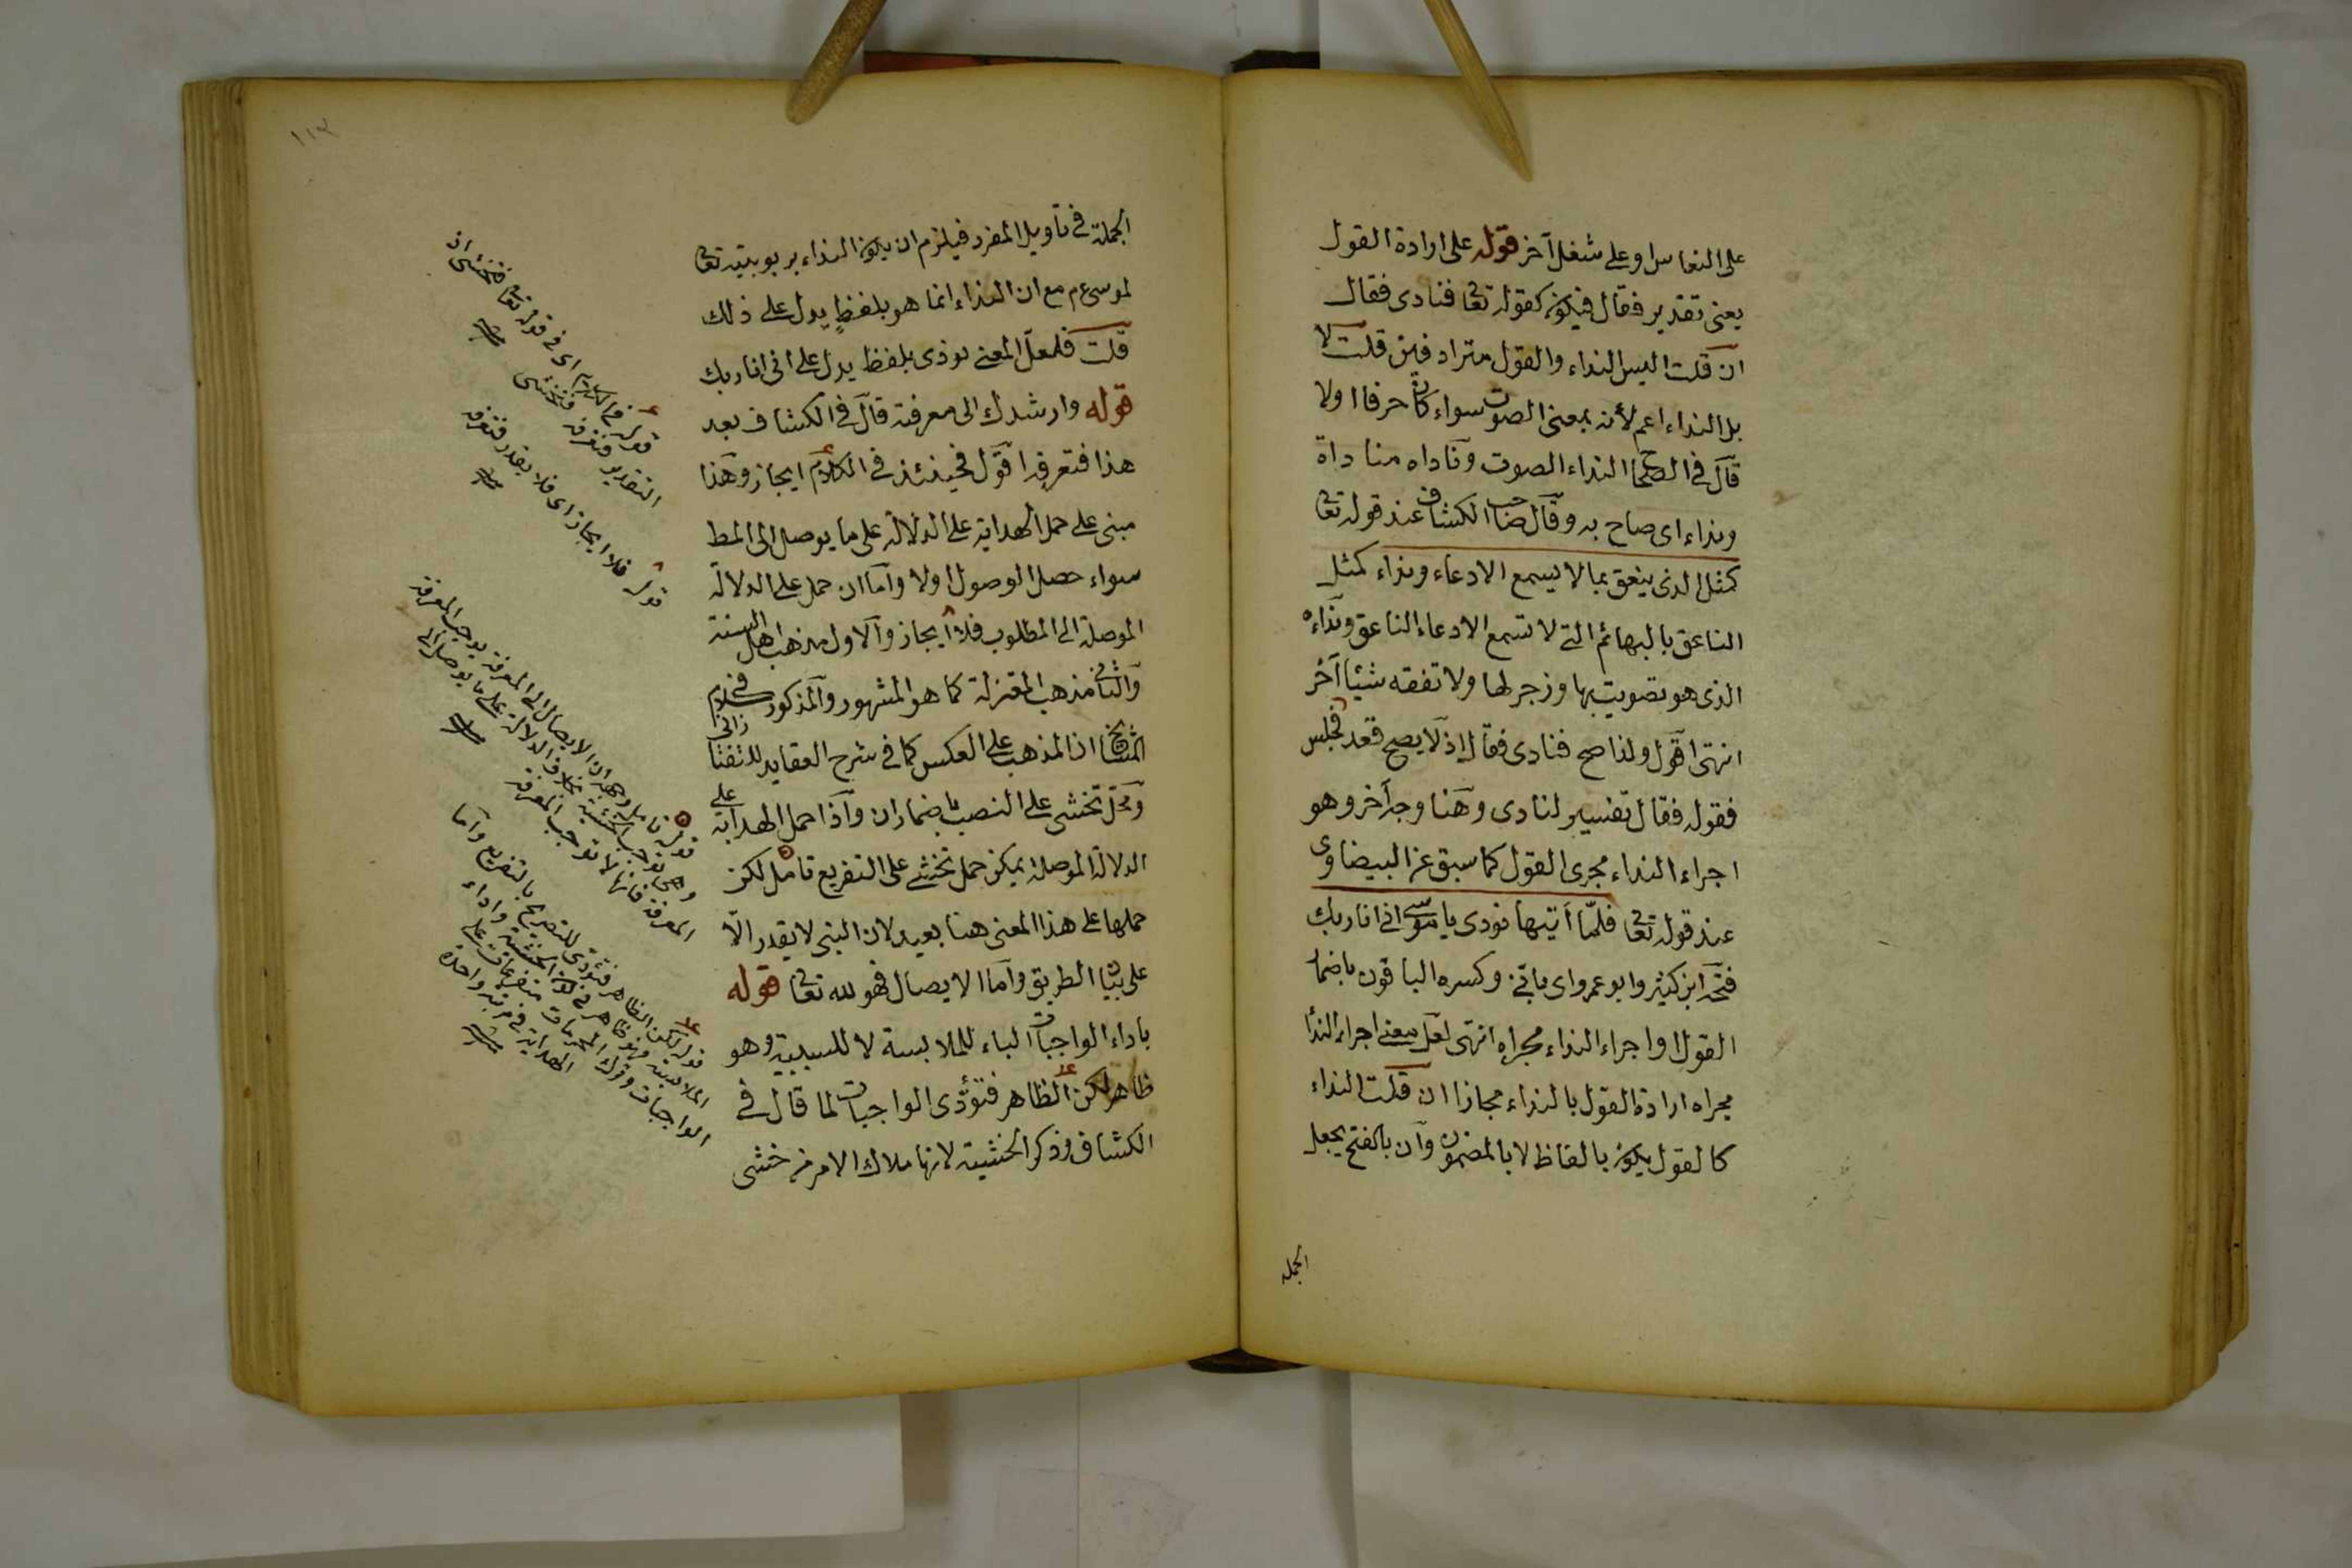 على النعاس او على شغل آخر قوله على ارادة القول
يعنى تقدير فقال فيكون كقوله تعا فنادى فقال
ان قلت اليس النداء والقول مترادفين قلت لا
بل النداء اعم لأنه بمعنى الصوت سواء كان حرفا اولا
قال فى الصحاح النداء الصوت وناداه مناداة
ونداء اى صاح به وقال صاحب الكشاف عند قوله تعا
كمثل الذى ينعق بما لا يسمع الا دعاء ونداء كمثل
الناعق بالبهائم التى لا تسمع الا دعاء الناعق ونداءه
الذى هو تصويت بها وزجر لها ولا تفقه شيئا آخر
انتهى اقول ولذا صح فنادى فقال اذ لا يصح قعد فجلس
فقوله فقال تفسير لنادى وهنا وجه آخر وهو
اجراء النداء مجرى القول كما سبق عن البيضاوى
عند قوله تعا فلمّا أتيها نودى يا موسى انى انا ربك
فتحه ابن كثير وابو عمرو اى بانى وكسره الباقون باضمار
القول او اجراء النداء مجراه انتهى لعل معنى اجراء الندا
مجراه ارادة القول بالنداء مجازا ان قلت النداء
كالقول يكون بالفاظ لا بالمضمون وأن بالفتح يجعل
الجملة
١١٣
الجملة فى تأويل المفرد فيلزم ان يكون النداء بربوبيته تعا
لموسى ع م مع ان النداء انما هو بلفظٍ يدل على ذلك
قلت فلعل المعنى نودى بلفظ يدل على انى انا ربك
قوله وارشدك الى معرفته قال فى الكشاف بعد
هذا فتعرفه اقول فحينئذ فى الكلام ايجاز وهذا
مبنى على حمل الهداية على الدلالة على ما يوصل الى المط
سواء حصل الوصول اولا واما ان حمل على الدلالة
الموصلة الى المطلوب فلا ايجاز والاول مذهب اهل السنة
والثانى مذهب المعتزلة كما هو المشهور والمذكور فى كلام
المشايخ ان المذهب على العكس كما فى شرح العقايد للتفتازانى
ومحل تخشى على النصب باضمار ان واذا حمل الهداية على
الدلالة الموصلة يمكن حمل تخشى على التفريع تأمل لكن
حملها على هذا المعنى هنا بعيد لان النبى لا يقدر الّا
على بيان الطريق واما الايصال فهو لله تعا قوله
باداء الواجبات الباء للملابسة لا للسببية وهو
ظاهر لكن الظاهر فتؤدى الواجبات لما قال فى
الكشاف وذكر الخشية لانها ملاك الامر من خشى
قوله فى الكلام اى فى قوله تعا فتخشى ان
التقدير فتعرفه فتخشى
قوله فلا ايجاز اى فلا يقدر فتعرفه
قوله تأمل وجهه ان الايصال الى المعرفة يوجب المعرفة
وهى توجب الخشية بخلاف الدلالة على ما يوصل الى
المعرفة فانها لا توجب المعرفة
قوله لكن الظاهر فتؤدى للتصريح بالتفريع واما
الملابسة
الواجبات وترك المحرمات متفرعان على
الهداية فى مرتبة واحدة